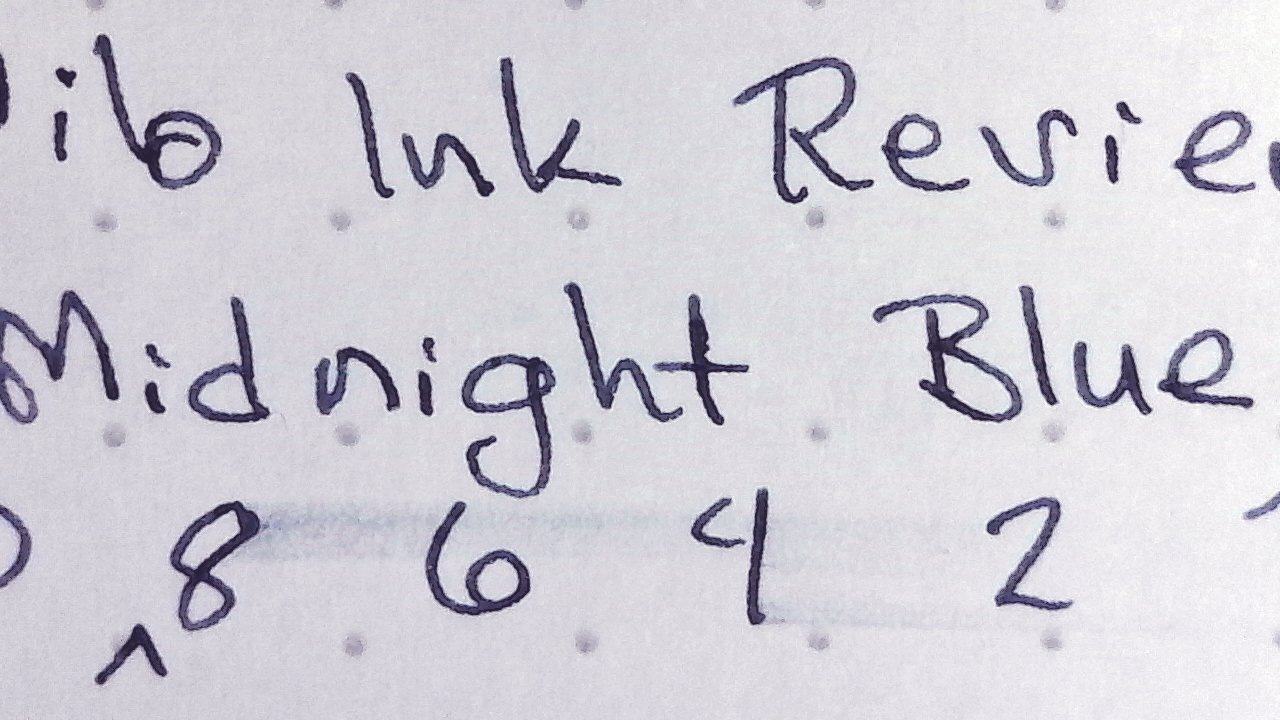 ib Ink Revie
Midnight Blue
8 6 4 2
^